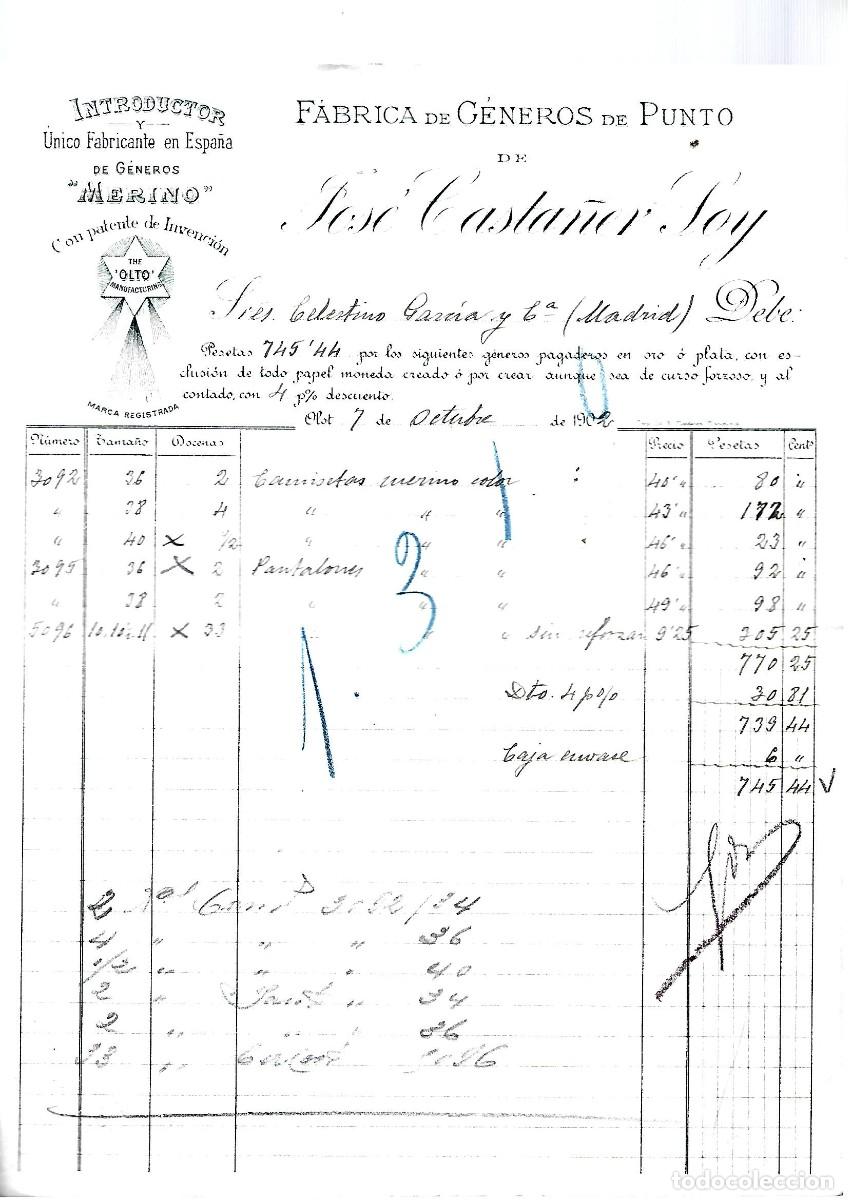 INTRODUCTOR
Y
Único Fabricante en España
DE GÉNEROS
"MERINO"
Con patente de Invención
THE
'OLTO'
MANUFACTURING
MARCA REGISTRADA
FÁBRICA DE GÉNEROS DE PUNTO
DE
José Castañer Soy
Sres. Celestino García y Cª (Madrid) Debe:
Pesetas 745'44 por los siguientes géneros pagaderos en oro ó plata, con es-
clusión de todo papel moneda creado ó por crear aunque sea de curso forzoso, y al
contado, con 4 p% descuento.
Olot 7 de Octubre de 1902
Número Tamaño Docenas Precio Pesetas Cents
3092 36 2 Camisetas merino color 40'" 80 "
" 38 4 " " " 43'" 172 "
" 40 x 1/2 " " " 46'" 23 "
3095 36 x 2 Pantalones " " 46'" 92 "
" 38 2 " " " 49'" 98 "
5096 x 33 " " sin reforzar 9'25 305 25
770 25
Dto. 4 p% 30 81
739 44
Caja envase 6 "
745 44
1 3
1.
2 3092/34
4 " " " 36
1/2 " " " 40
2 " " 34
2 " " 36
33 "
todocoleccion